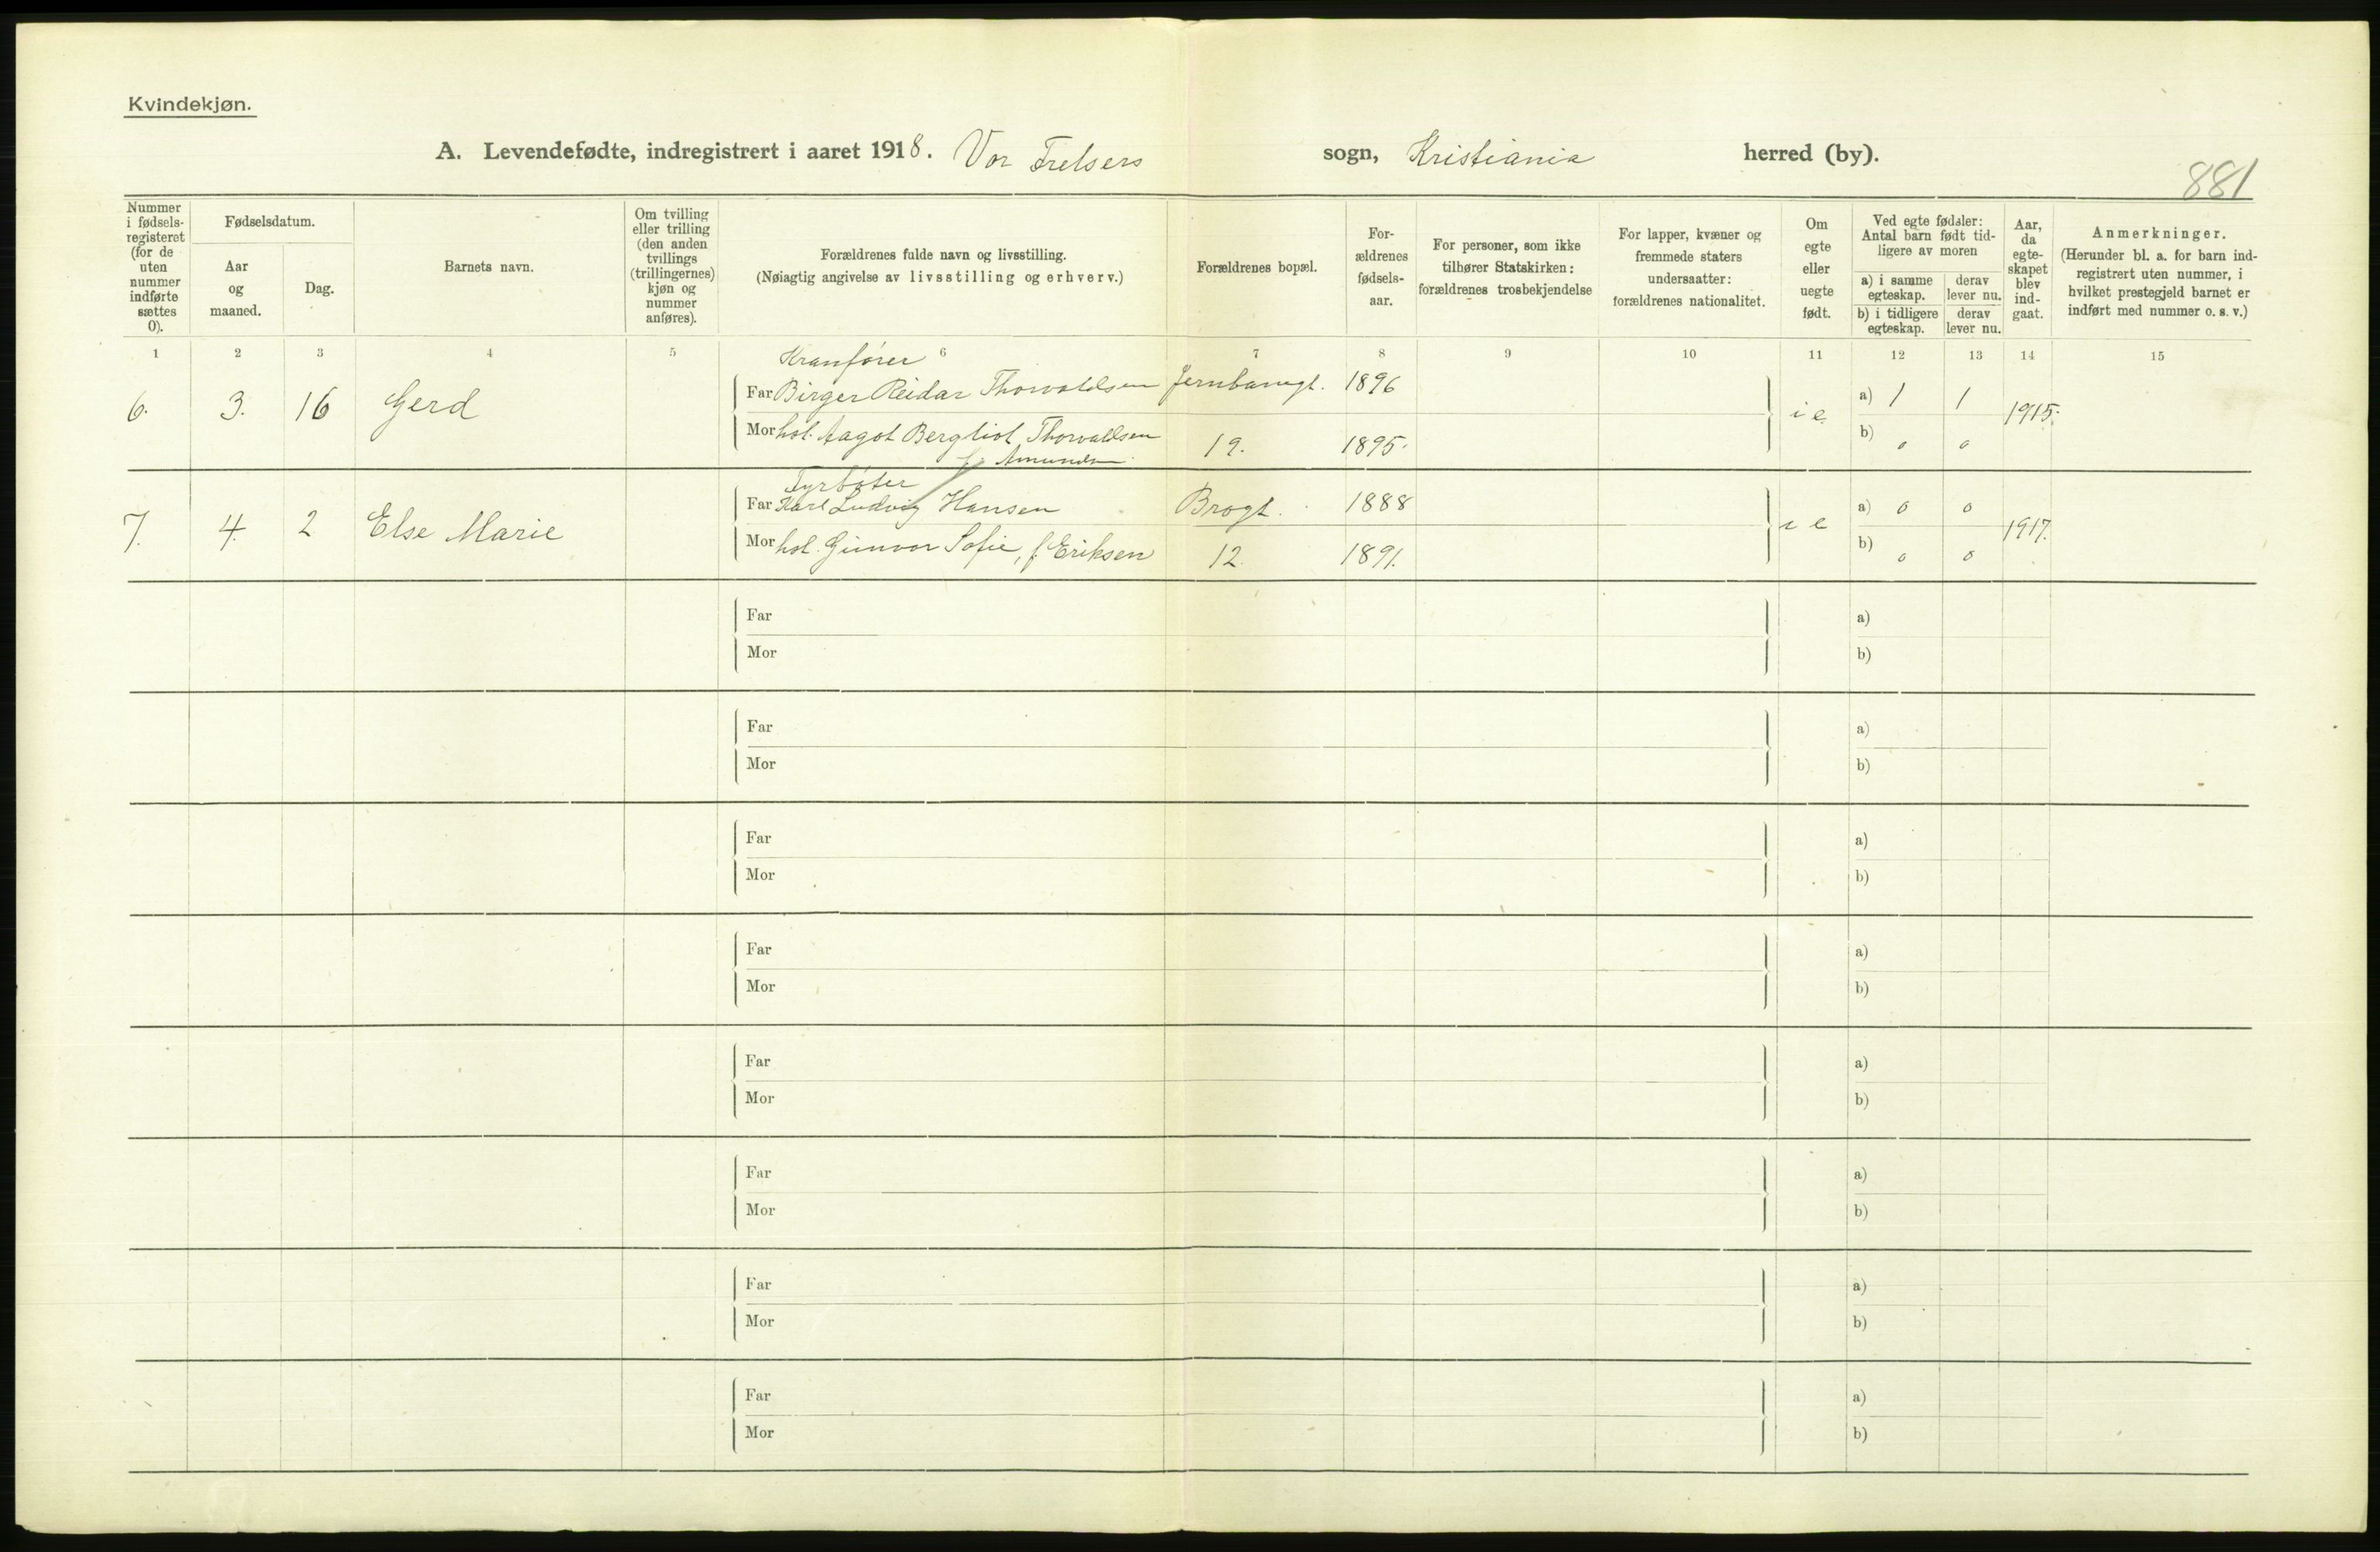 Kvindekjøn.
A. Levendefødte, indregistrert i aaret 1918. Vor Frelsers sogn, Kristiania herred (by).
881
Nummer i fødsels-registeret (for de uten nummer indførte sættes 0).
Fødselsdatum.
Aar og maaned.
Dag.
Barnets navn.
Om tvilling eller trilling (den anden tvillings (trillingernes) kjøn og nummer anføres).
Forældrenes fulde navn og livsstilling.
(Nøiagtig angivelse av livsstilling og erhverv.)
Forældrenes bopæl.
For-ældrenes fødsels-aar.
For personer, som ikke tilhører Statskirken: forældrenes trosbekjendelse
For lapper, kvæner og fremmede staters undersaatter: forældrenes nationalitet.
Om egte eller uegte født.
Ved egte fødsler: Antal barn født tid-ligere av moren
a) i samme egteskap.
derav lever nu.
b) i tidligere egteskap.
derav lever nu.
Aar, da egte-skapet blev ind-gaat.
Anmerkninger.
(Herunder bl. a. for barn ind-registrert uten nummer, i hvilket prestegjeld barnet er indført med nummer o. s. v.)
1 2 3 4 5 6 7 8 9 10 11 12 13 14 15
Kranfører
6. 3. 16 Gerd Far Birger Reidar Thorvaldsen Jernbanegt. 1896 i e a) 1 1 1915.
Mor hst. Aagot Bergliot Thorvaldsen 19. 1895. b) 0 0
f. Amundsen
Fyrbøter
7. 4. 2 Else Marie Far Karl Ludvig Hansen Brogt. 1888 i e a) 0 0 1917.
Mor hst. Gunvor Sofie, f. Eriksen 12. 1891. b) 0 0
Far a)
Mor b)
Far a)
Mor b)
Far a)
Mor b)
Far a)
Mor b)
Far a)
Mor b)
Far a)
Mor b)
Far a)
Mor b)
Far a)
Mor b)